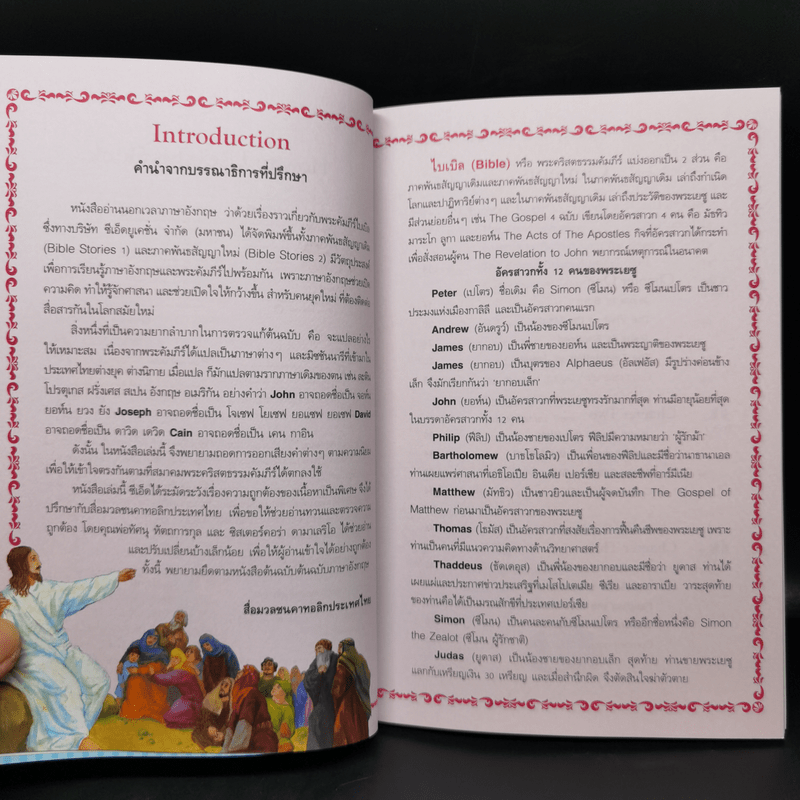 Introduction
คำนำจากบรรณาธิการที่ปรึกษา
หนังสืออ่านนอกเวลาภาษาอังกฤษ ว่าด้วยเรื่องราวเกี่ยวกับพระคัมภีร์ไบเบิล
ซึ่งทางบริษัท ซีเอ็ดยูเคชั่น จำกัด (มหาชน) ได้จัดพิมพ์ขึ้นทั้งภาคพันธสัญญาเดิม
(Bible Stories 1) และภาคพันธสัญญาใหม่ (Bible Stories 2) มีวัตถุประสงค์
เพื่อการเรียนรู้ภาษาอังกฤษและพระคัมภีร์ไปพร้อมกัน เพราะภาษาอังกฤษช่วยเปิด
ความคิด ทำให้รู้จักศาสนา และช่วยเปิดใจให้กว้างขึ้น สำหรับคนยุคใหม่ ที่ต้องติดต่อ
สื่อสารกันในโลกสมัยใหม่
สิ่งหนึ่งที่เป็นความยากลำบากในการตรวจแก้ต้นฉบับ คือ จะแปลอย่างไร
ให้เหมาะสม เนื่องจากพระคัมภีร์ได้แปลเป็นภาษาต่างๆ และมิชชันนารีที่เข้ามาใน
ประเทศไทยต่างยุค ต่างนิกาย เมื่อแปล ก็มักแปลตามรากภาษาเดิมของตน เช่น ละติน
โปรตุเกส ฝรั่งเศส สเปน อังกฤษ อเมริกัน อย่างคำว่า John อาจถอดชื่อเป็น จอห์น
ยอห์น ยวง ยัง Joseph อาจถอดชื่อเป็น โจเซฟ โยเซฟ ยอแซฟ ยอเซฟ David
อาจถอดชื่อเป็น ดาวิด เดวิด Cain อาจถอดชื่อเป็น เคน กาอิน
ดังนั้น ในหนังสือเล่มนี้ จึงพยายามถอดการออกเสียงคำต่างๆ ตามความนิยม
เพื่อให้เข้าใจตรงกันตามที่สมาคมพระคริสตธรรมคัมภีร์ได้ตกลงใช้
หนังสือเล่มนี้ ซีเอ็ดได้ระมัดระวังเรื่องความถูกต้องของเนื้อหาเป็นพิเศษ จึงได้
ปรึกษากับสื่อมวลชนคาทอลิกประเทศไทย เพื่อขอให้ช่วยอ่านทวนและตรวจความ
ถูกต้อง โดยคุณพ่อทัศนุ หัตถการกุล และ ซิสเตอร์คอร่า ดามาเลริโอ ได้ช่วยอ่าน
และปรับเปลี่ยนบ้างเล็กน้อย เพื่อให้ผู้อ่านเข้าใจได้อย่างถูกต้อง
ทั้งนี้ พยายามยึดตามหนังสือต้นฉบับต้นฉบับภาษาอังกฤษ
สื่อมวลชนคาทอลิกประเทศไทย
ไบเบิล (Bible) หรือ พระคริสตธรรมคัมภีร์ แบ่งออกเป็น 2 ส่วน คือ
ภาคพันธสัญญาเดิมและภาคพันธสัญญาใหม่ ในภาคพันธสัญญาเดิม เล่าถึงกำเนิด
โลกและปาฏิหาริย์ต่างๆ และในภาคพันธสัญญาเดิม เล่าถึงประวัติของพระเยซู และ
มีส่วนย่อยอื่นๆ เช่น The Gospel 4 ฉบับ เขียนโดยอัครสาวก 4 คน คือ มัชทิว
มาระโก ลูกา และยอห์น The Acts of The Apostles กิจที่อัครสาวกได้กระทำ
เพื่อสั่งสอนผู้คน The Revelation to John พยากรณ์เหตุการณ์ในอนาคต
อัครสาวกทั้ง 12 คนของพระเยซู
Peter (เปโตร) ชื่อเดิม คือ Simon (ซีโมน) หรือ ซีโมนเปโตร เป็นชาว
ประมงแห่งเมืองกาลิลี และเป็นอัครสาวกคนแรก
Andrew (อันดรูว์) เป็นน้องของซีโมนเปโตร
James (ยากอบ) เป็นพี่ชายของยอห์น และเป็นพระญาติของพระเยซู
James (ยากอบ) เป็นบุตรของ Alphaeus (อัลเฟอัส) มีรูปร่างค่อนข้าง
เล็ก จึงมักเรียกกันว่า 'ยากอบเล็ก'
John (ยอห์น) เป็นอัครสาวกที่พระเยซูทรงรักมากที่สุด ท่านมีอายุน้อยที่สุด
ในบรรดาอัครสาวกทั้ง 12 คน
Philip (ฟีลิป) เป็นน้องชายของเปโตร ฟีลิปมีความหมายว่า 'ผู้รักม้า'
Bartholomew (บาธโธโลมิว) เป็นเพื่อนของฟีลิปและมีชื่อว่านาธานาเอล
ท่านเผยแพร่ศาสนาที่เอธิโอเปีย อินเดีย เปอร์เซีย และสละชีพที่อาร์มีเนีย
Matthew (มัทธิว) เป็นชาวยิวและเป็นผู้จดบันทึก The Gospel of
Matthew ก่อนมาเป็นอัครสาวกของพระเยซู
Thomas (โธมัส) เป็นอัครสาวกที่สงสัยเรื่องการฟื้นคืนชีพของพระเยซู เพราะ
ท่านเป็นคนที่มีแนวความคิดทางด้านวิทยาศาสตร์
Thaddeus (ธัดเดอุส) เป็นพี่น้องของยากอบและมีชื่อว่า ยูดาส ท่านได้
เผยแผ่และประกาศข่าวประเสริฐที่เมโสโปเตเมีย ซีเรีย และอาราเบีย วาระสุดท้าย
ของท่านคือได้เป็นมรณสักขีที่ประเทศเปอร์เซีย
Simon (ซีโมน) เป็นคนละคนกับซีโมนเปโตร หรืออีกชื่อหนึ่งคือ Simon
the Zealot (ซีโมน ผู้รักชาติ)
Judas (ยูดาส) เป็นน้องชายของยากอบเล็ก สุดท้าย ท่านขายพระเยซู
แลกกับเหรียญเงิน 30 เหรียญ และเมื่อสำนึกผิด จึงตัดสินใจฆ่าตัวตาย